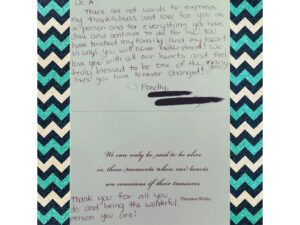 Dr. A
There are not words to express
my thankfulness and love for you as
a person and for everything you have
done and continue to do for me! You
have touched my family and my heart
in ways you will never understand! We
love you with all our hearts and feel
truly blessed to be one of the many
lives you have forever changed!
Fondly,
We can only be said to be alive
in those moments when our hearts
are conscious of their treasures
Thornton Wilder
Thank you for all you
do and being the wonderful
person you are!